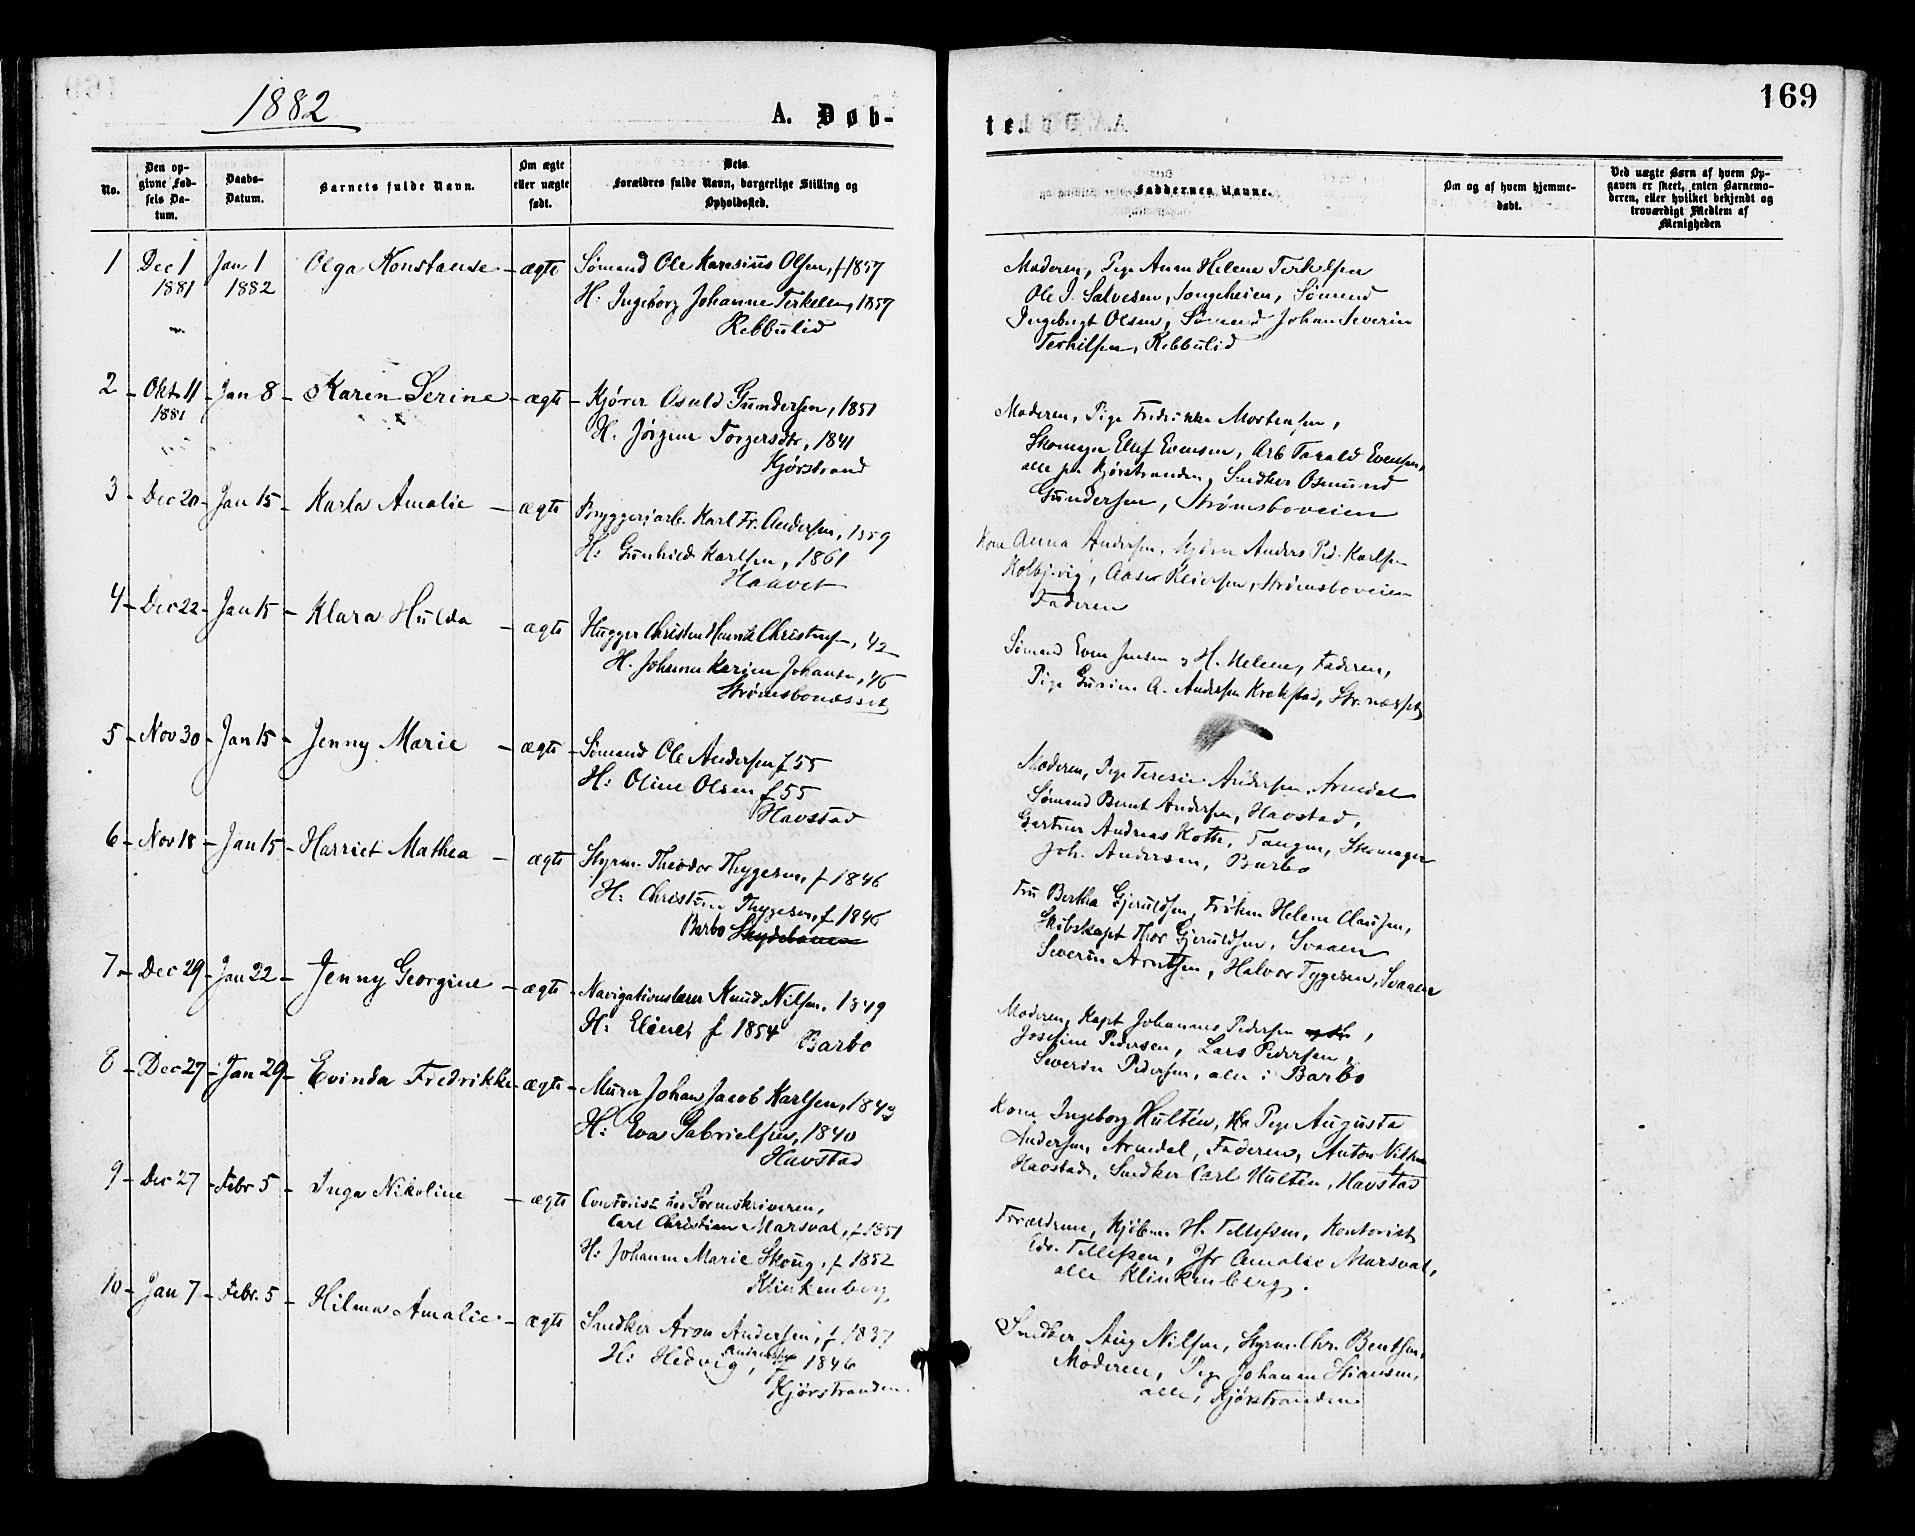 1882
A. Døb-
No.
Den op-
givne Fød-
sels Da-
tum.
Daabs-
Datum.
Barnets fulde Navn.
Om ægte
eller uægte
født.
Dets
Forældres fulde Navn, borgerlige Stilling og
Opholdsted.
1 Dec 1 Jan 1 Olga Konstanse - ægte Sømand Ole Olsen, f 1857
1881 1882 H: Ingeborg Johanne Terkelsen, 1857
Rebbulid
2 - Okt 11 - Jan 8 - Karen Serine - ægte - Kjører Osuld Gundersen, 1851
1881 H. Jørgine Torgersdtr, 1841
Kjørstrand
3 - Dec 20 - Jan 15 - Karla Amalie - ægte Bryggeriarb. Karl Fr. Andersen, 1859
H: Gunhild Karlsen, 1861
Haavet
4 - Dec 22 - Jan 15 - Klara Hulda - ægte Hugger Christen Christensen, 42
H. Johanne Johansen, 45
Strømsbonesset
5 - Nov 30 - Jan 15 - Jenny Marie - ægte - Sømand Ole Andersen f 55
H: Oline Olsen f 55
Havstad
6 - Nov 18 - Jan 15 - Harriet Mathea - ægte Styrm. Theodor Thygesen, f 1846
H: Christine Thygesen, f 1846
Barbo Skydebanen
7 - Dec 29 - Jan 22 - Jenny Georgine - ægte - Navigationslærer Knud Nilsen, 1849
H: Eline, f 1854 Barbo
8 - Dec 27 - Jan 29 - Evinda Fredrikke - ægte - Murer Johan Jacob Karlsen, 1843
H: Eva Gabrielsen, 1840
Havstad
9 Dec 27 - Febr 5 - Inga Nikoline - ægte Contorist hos Sorenskriveren,
Carl Christian Marsval, f. 1851
H: Johanne Marie Skoug, f 1852
Klinkenberg
10 - Jan 7 - Febr. 5 - Hilma Amalie - ægte - Snedker Aron Andersen, f. 1837
H: Hedvig Andersen, f 1846
Kjørstranden.
169
te.
Faddernes Navne.
Om og af hvem hjemme-
døbt.
Ved uægte Børn af hvem Op-
gaven er skeet, enten Barnemo-
deren, eller hvilket bekjendt og
troværdigt Medlem af
Menigheden
Moderen, Pige Anna Helene Terkelsen
Ole J. Salvesen, Songeheien, Sømand
Ingebrigt Olsen, Sømand Johan Severin
Terkilsen, Rebbulid
Moderen, Pige Fredrikke Mortensen,
Skomager Ellef Evensen, Arb Tarald Evensen,
alle paa Kjørstranden, Snedker Osmund
Gundersen, Strømsboveien
Kone Anna Andersen, Kjører Anders Ped. Karlsen
Kolbjvig, Reiersen, Strømsboveien
Faderen
Sømand Even Jensen og H. Helene, Faderen,
Pige Gurine A. Andersen Krokstad, Str. næsset
Moderen, Pige Teresie Andersen Arendal
Sømand Bernt Andersen, Havstad,
Gartner Andreas Kotte, Tangen, Skomager
Joh. Andersen, Barbo
Fru Bertha Gjeruldsen, Frøken Helene Clausen,
Skibskapt Thor Gjeruldsen, Svaaen
Severin Arntsen, Halvor Tygesen, Svaaen
Moderen, Kapt Johannes Pedersen og H.,
Josefine Pedersen, Lars Pedersen,
Severin Pedersen, alle i Barbo
Kone Ingeborg Hultén, Pige Augusta
Andersen, Arendal, Faderen, Anton
Havstad, Snedker Carl Hultén, Havstad
Forældrene, Kjøbm. H. Tellefsen, Kontorist
Edv. Tellefsen, Jfr Amalie Marsval,
alle Klinkenberg.
Snedker Aug Nilsen, Styrm. Chr. Bentsen,
Moderen, Pige Johanne
alle, Kjørstranden